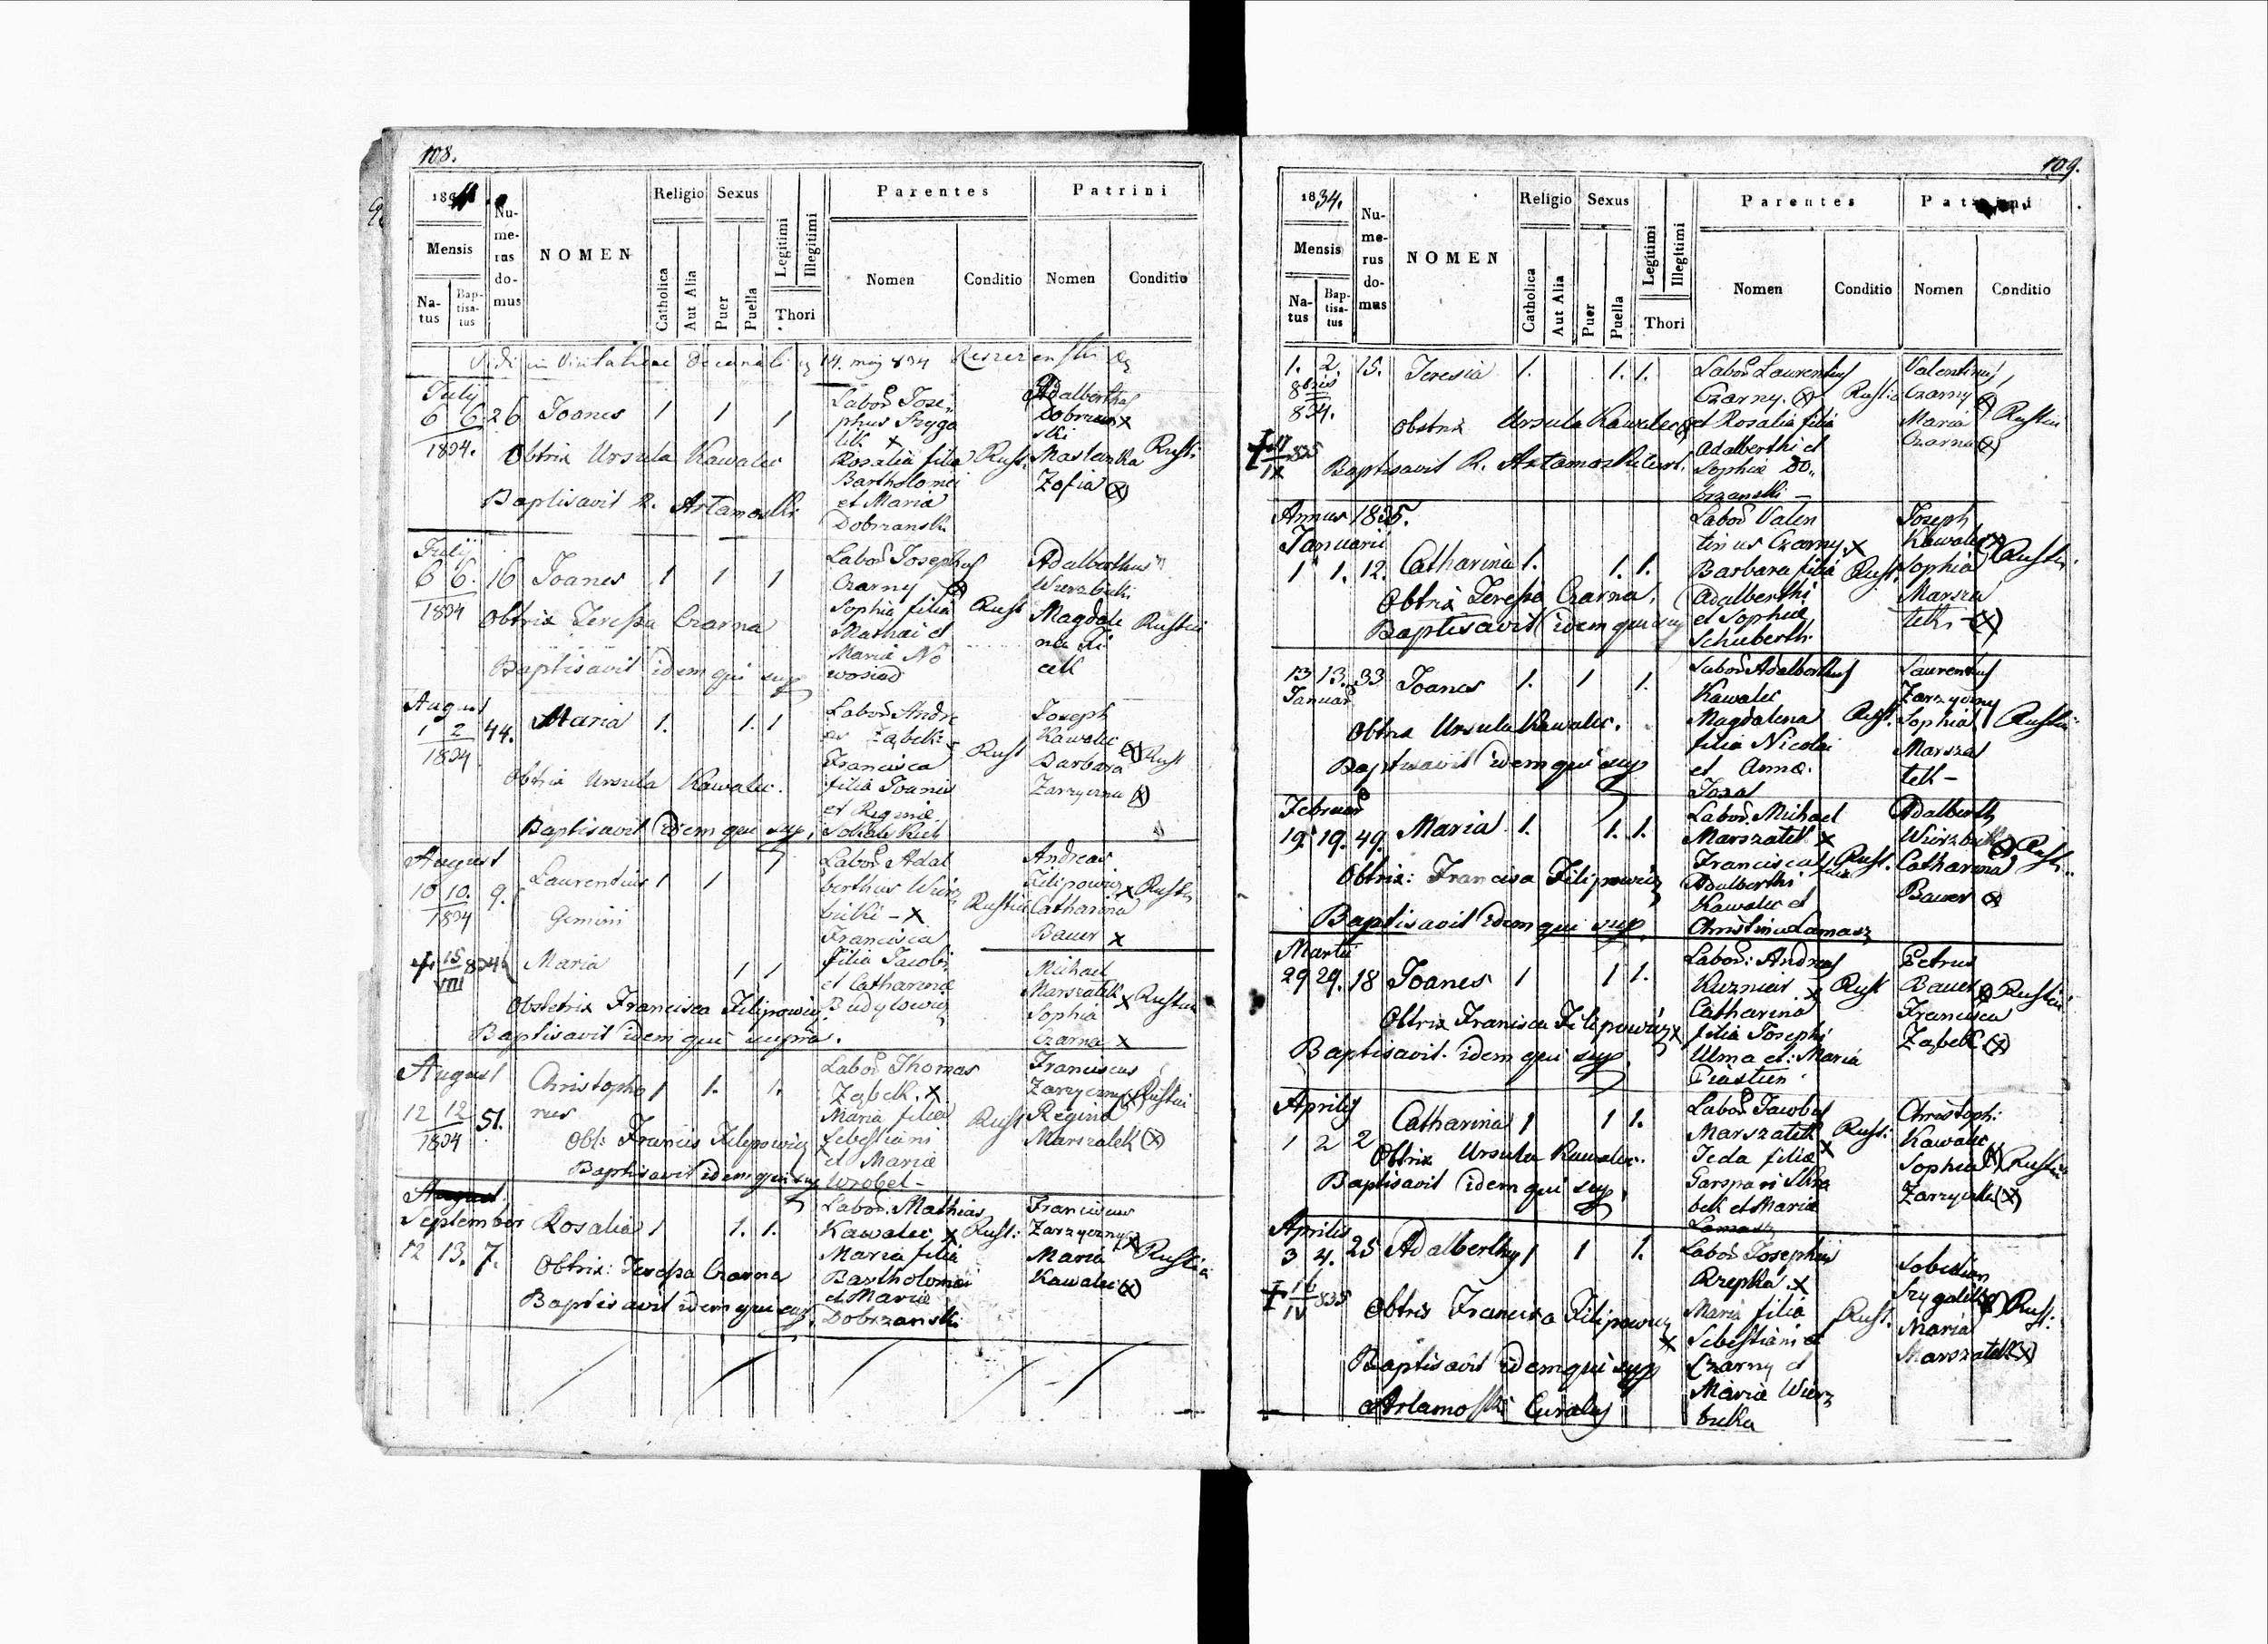 108.
Numerus domus
NOMEN
Religio
Sexus
Parentes
Patrini
Mensis
Natus
Baptisatus
Catholica
Aut Alia
Puer
Puella
Legitimi
Illegitimi
Thori
Nomen
Conditio
Nomen
Conditio
14. maj 834
July
6 6. 26 Joanes 1 1 1
1834.
Obtrix Ursula Kawalec
Baptisavit R. Artamoski
Labor Jose
phus Szyga
lik x
Rosalia filia Rust.
Bartholomei
et Maria
Dobrzanski
Adalberthus
Dobrzan x
ski
Rusti
Zofia (x)
July
6 6. 16 Joanes 1 1 1
1834
Obtrix Teressa Czarna
Baptisavit idem qui sup
Labor Josephus
Czarny
Sophia filia Rust
Mathai et
Maria No
wosiad
Adalberthus
Wierzbicki
Magdale Rustici
na
August
1 2 44. Maria 1. 1. 1
1834
Obtrix Ursula Kawalec.
Baptisavit idem qui sup,
Labor Andre
as Ząbek
Francisca Rust
filia Joanis
et Reginæ
Joseph
Kawalec (x) Rust
Barbara
Zarzyczna (x)
August
10 10. 9. Laurentius 1 1
1834
Gemini
Labor Adal
berthus Wierz
bicki - x Rustici
Francisca
filia Jacobi
et Catharinæ
Budylowicz
Andreas
Filipowicz x Rusti
Catharina
Bauer x
15 834
VIII
Maria 1 1
Obstetrix Francisca Filipowicz
Baptisavit idem qui supra.
Michael
Marszałek x Rustici
Sophia
Czarna x
August
12 12 51. Christopho 1 1. 1.
rus
1834
Obt: Francis Filipowicz
Baptisavit idem qui sup
Labor Thomas
Ząbek. x
Maria filia Rust
Sebestiani
et Mariæ
Wrobel -
Franciscus
Zarzyczny (x) Rustici
Regina
Marszalek (x)
August.
September
12 13. 7. Rosalia 1 1. 1.
Obtrix: Teressa Czarna
Baptisavit idem qui sup
Labor. Mathias
Kawalec x Rust:
Maria filia
Bartholomei
et Mariæ
Dobrzanski
Franciscus
Zarzyczny x
Maria Rustici
Kawalec (x)
109.
1834.
Numerus domus
NOMEN
Religio
Sexus
Parentes
Patrini
Mensis
Natus
Baptisatus
Catholica
Aut Alia
Puer
Puella
Legitimi
Illegitimi
Thori
Nomen
Conditio
Nomen
Conditio
1. 2. 15. Teresia 1. 1. 1.
8bris
834.
Obstrix Ursula Kawalec (x)
Baptisavit R. Artamoski Curat.
Labor Laurentius
Czarny. (x) Rustic
et Rosalia filia
Adalberthi et
Sophia Do
brzanski -
Valentinus
Czarny (x)
Maria Rustici
Czarna (x)
Annus 1835.
Januarii
1 1. 12. Catharina 1. 1. 1.
Obtrix Teressa Czarna.
Baptisavit idem qui sup
Labor Valen
tinus Czarny x
Barbara filia Rust.
Adalberthi
et Sophiæ
Schuberth
Joseph
Kawalec x
Sophia Rustici
Marsza
lek - (x)
13 13. 33 Joanes 1. 1 1.
Januar
Obtrix Ursula Kawalec.
Baptisavit idem qui sup
Labor Adalberthus
Kawalec
Magdalena Rust.
filia Nicolai
et Annæ
Laurentius
Zarzyczny
Sophia Rustici
Marsza
lek -
Februar
19. 19. 49. Maria 1. 1. 1.
Obtrix: Francisca Filipowicz
Baptisavit idem qui sup.
Labor. Michael
Marszalek x
Francisca filia Rust.
Adalberthi
Kawalec et
Christina Lamasz
Adalberth
Wierzbicki (x) Rust.
Catharina
Bauer (x)
Martii
29 29. 18 Joanes 1 1 1.
Obtrix Francisca Filipowicz x
Baptisavit. idem qui sup.
Labor: Andreas
Kuzniar x Rust
Catharina
filia Josephi
Ulma et: Maria
Petrus
Bauer (x) Rustici
Francisca
Ząbek (x)
Aprilis
1 2 2 Catharina 1 1 1.
Obtrix Ursula Kawalec.
Baptisavit idem qui sup,
Labor Jacobus
Marszalek x Rust:
filia
Garspari Skra
bek et Maria
Lamasz
Christoph:
Kawalec
Sophia (x) Rustici
(x)
Aprilis
3 4. 25 Adalberthus 1 1 1.
16 835
IV
Obtrix Francisca Filipowicz x
Baptisavit idem qui sup
Artamoski Curatus
Labor Josephus
Rzepka x
Maria filia Rust.
Sebestiani et
Czarny et
Maria Wierz
bicka
Sobestian
Szygalik (x) Rust:
Maria
Marszalek (x)